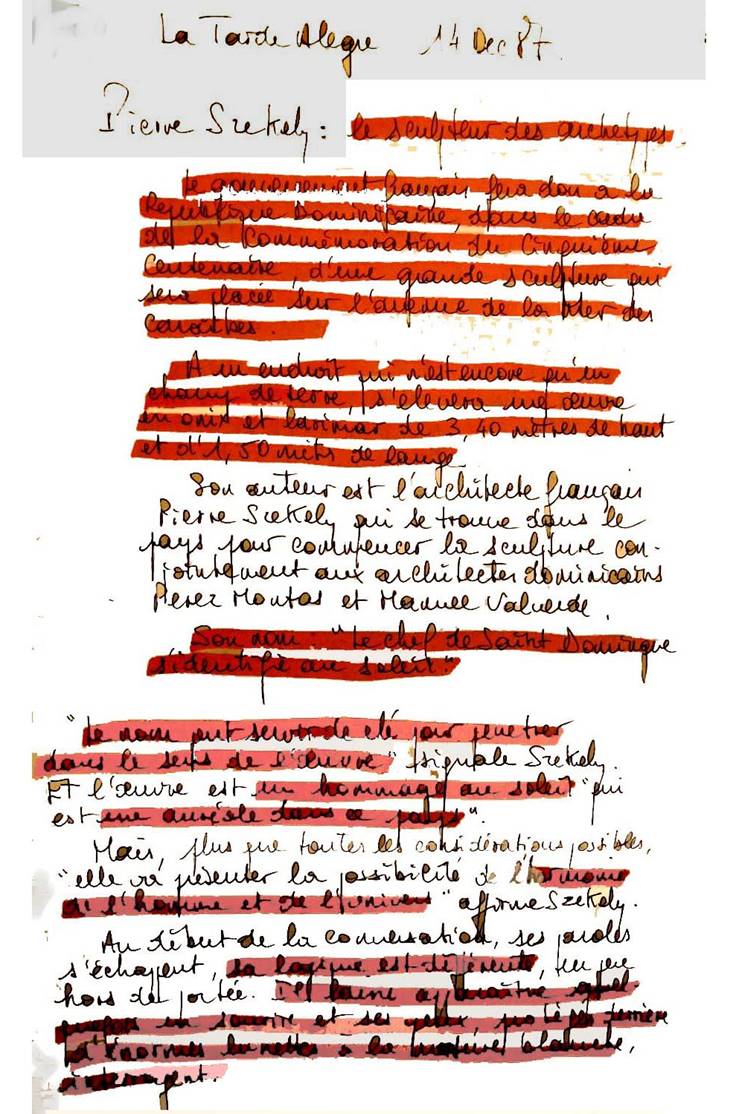 La Tarde Alegre 14 Dec 87.
Pierre Szekely : le sculpteur des archetypes.
Le gouvernement français fera don a la
République Dominicaine, dans le cadre
de la Commémoration du Cinquième
Centenaire, d'une grande sculpture qui
sera placée sur l'avenue de la Mer des
Caraïbes.
A un endroit qui n'est encore qu'un
champ de terre, s'elevera une œuvre
en onix et larimar de 3,40 mètres de haut
et d'1,50 mèts de large
Son auteur est l'architecte français
Pierre Szekely qui se trouve dans le
pays pour commencer la sculpture con-
jointement aux architectes dominicains
Perez Montas et Manuel Valverde.
Son nom : "Le chef de Saint Domingue
s'identifie au soleil."
"Le nom peut servir de clé pour penetrer
dans le sens de l'œuvre" signale Szekely.
Et l'œuvre est "un hommage au soleil" qui
est une auréole dans ce pays".
Mais, plus que toutes les considérations possibles,
"elle va présenter la possibilité de l'harmonie
de l'homme et de l'univers" affirme Szekely.
Au début de la conversation, ses paroles
s'échapent, sa logique est différente, un peu
hors de portée. Il laisse apparaître quel-
quefois un sourire et ses yeux, protégés derrière
d'énormes lunettes à la monture blanche,
interrogent.